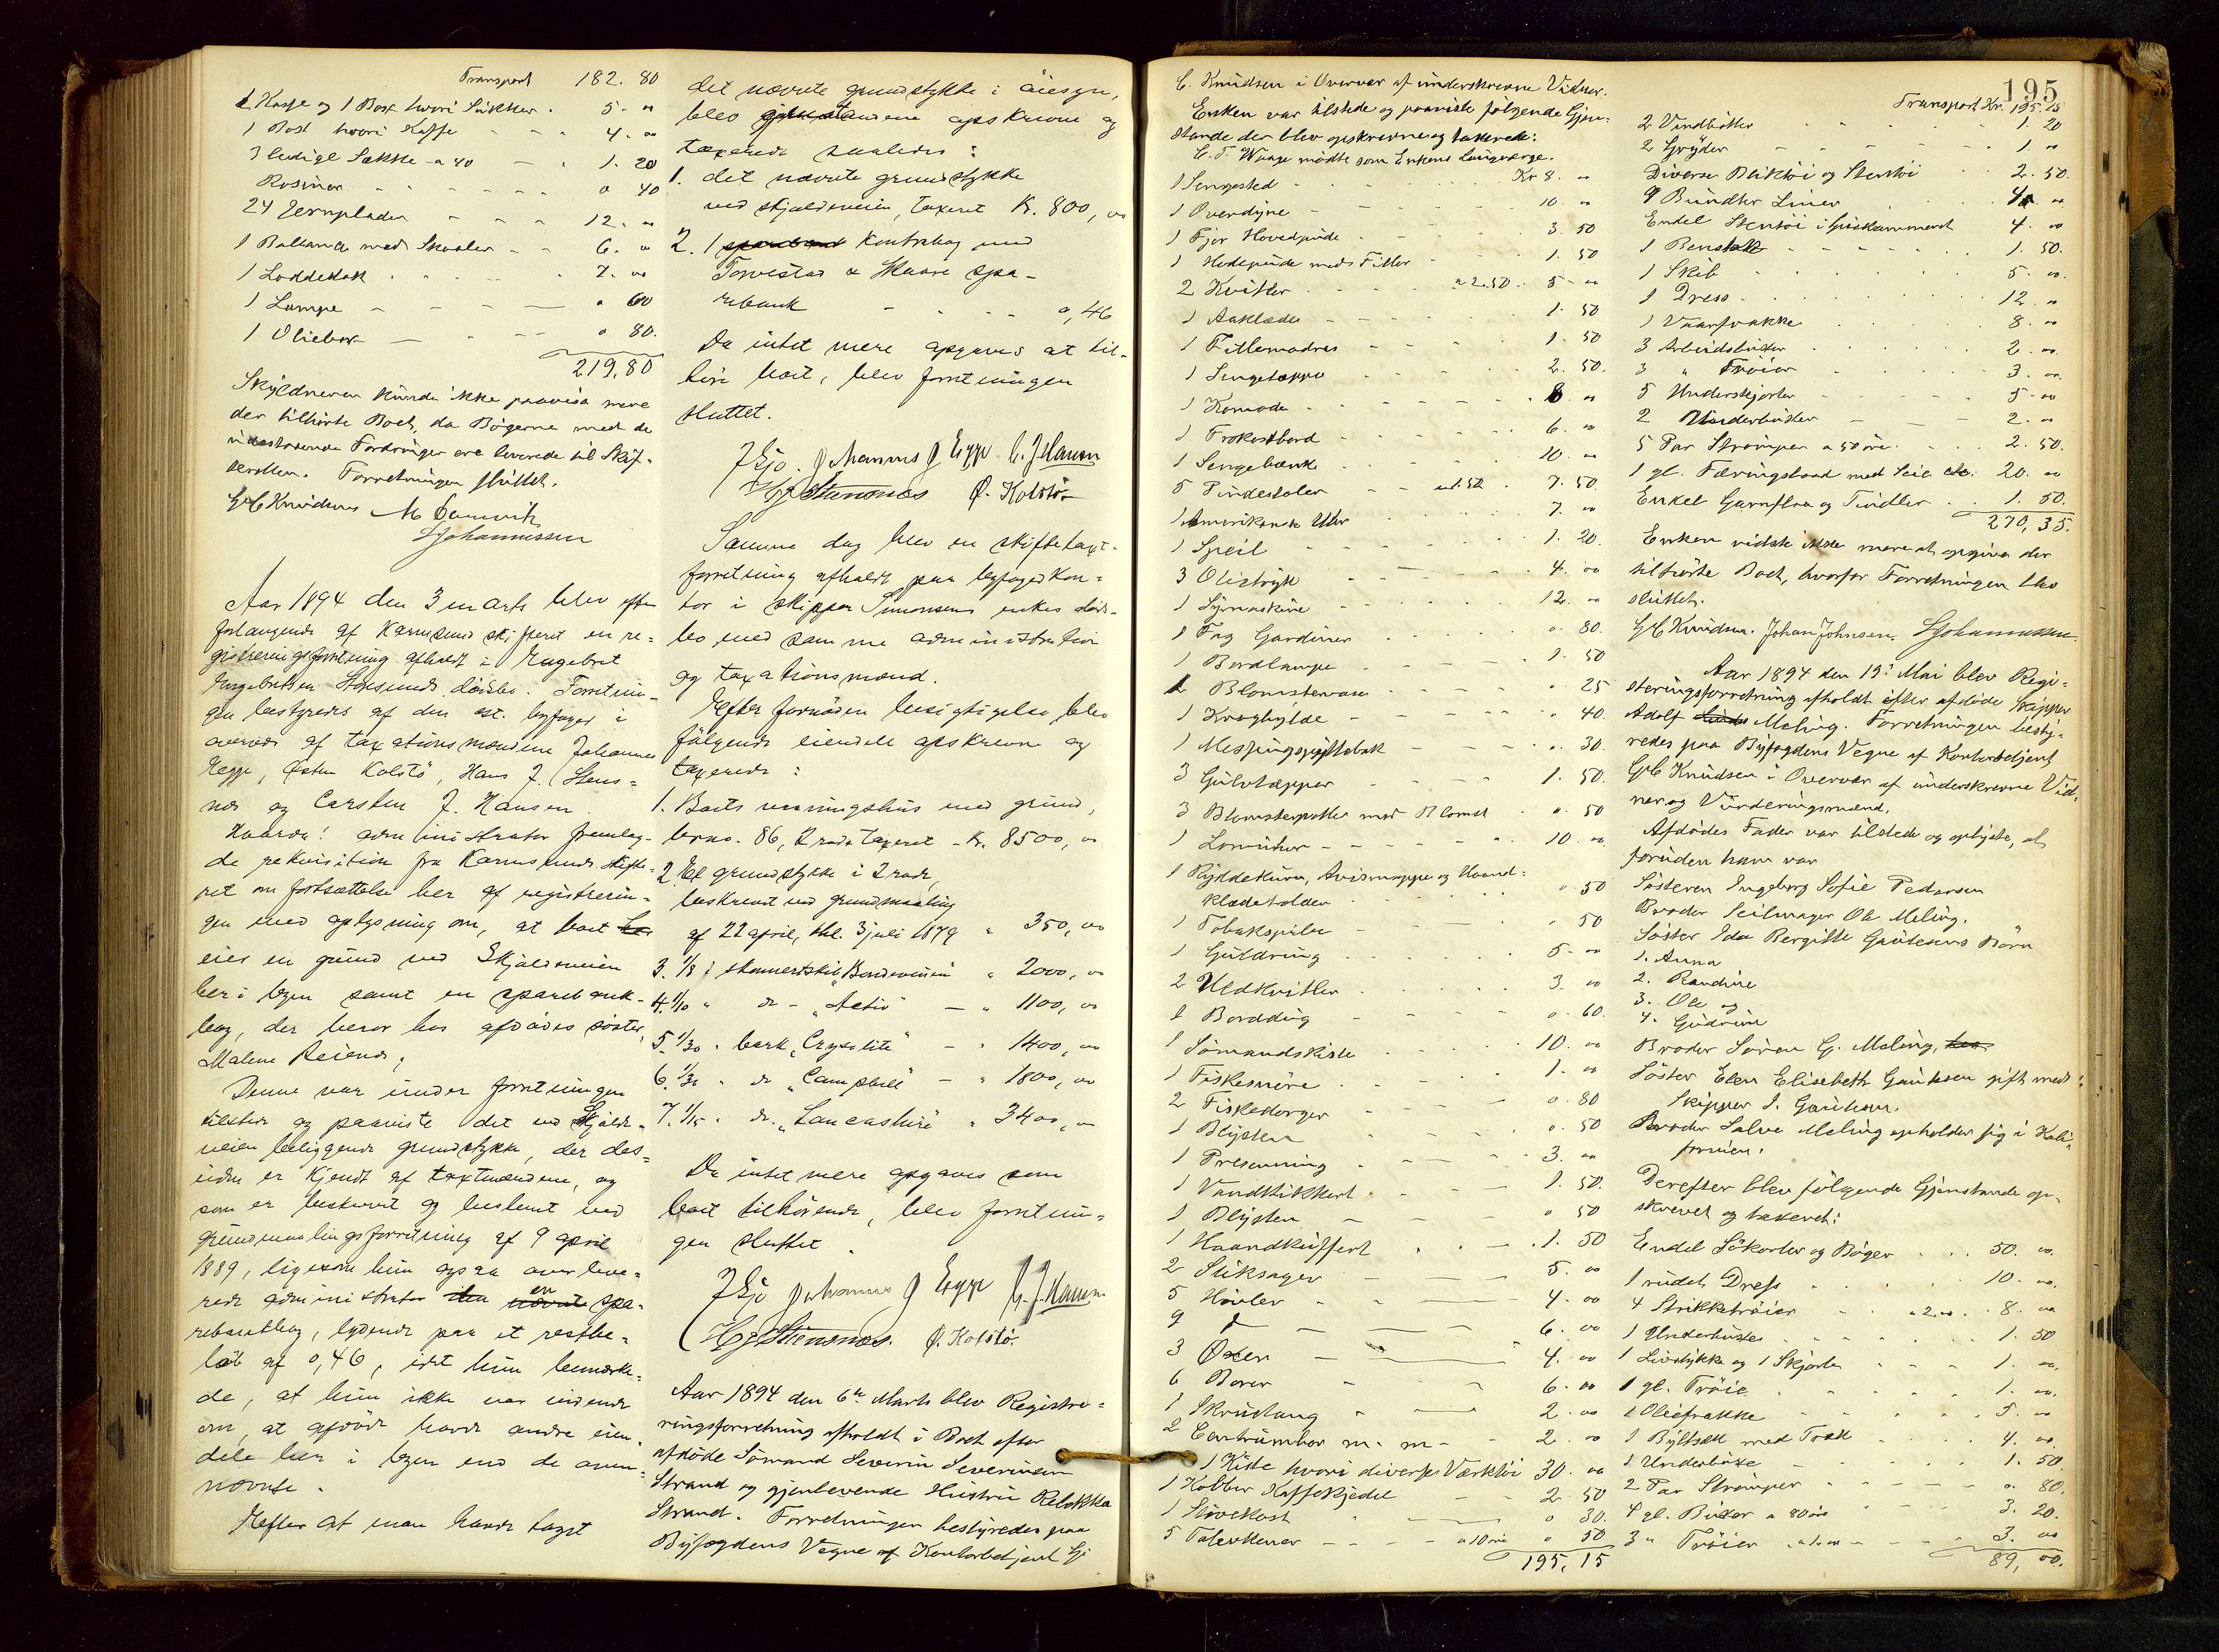 Transport 182. 80
1 Kasse og 1 Box hvori Sukker . 5. "
1 Boxt hvori Kaffe - - 4. "
3 ledige Sække a 40 - " 1. 20
Rosiner - - - - - o 40
24 Jernplader - - - 12. "
1 Ballance med Skaaler - - 6. "
1 Loddebolt - - - 2. "
1 Lampe - - - o 60
1 Oliebox - - - o 80.
219,80
Skyldneren kunde ikke paavise mere
der tilhörte Boet, da Bögerne med de
udestaaende Fordringer ere leverede til Skif-
teretten. Forretningen sluttet.
G C Knudsen M Danevith
S Johannessen
Aar 1894 den 3 marts blev efter
forlangende af Karmsund skifteret en re=
gistreringsforretning afholdt i Engebret
Engebretsen Storesunds dödsbo. Forretnin-
gen bestyredes af den cst. byfoged i
overvær af taxationsmændene Johannes
Egge, Østen Kolstö, Hans J. Stens=
næs og Carsten J. Hansen
Hvorda! administrator fremlag-
de rekvisition fra Karmsunds skifte-
ret om fortsættelse her af registrerin-
gen med oplysning om, at boet
eier en grund ved Skjoldsveien
her i byen samt en sparebank-
bog, der beror hos afdödes söster,
Malene Reiends.
Denne var under forretningen
tilstede og paaviste det ved Skjolds-
veien beliggende grundstykke, der des=
uden er kjendt af taxtmændene, og
som er beskrevet og bestemt ved
grundmaalingsforretning af 9 april
1889, ligesom hun ogsaa overleve-
rede administrator en spa-
rebankbog, lydende paa et restbe-
löb af 0,46, idet hun bemærke-
de, at hun ikke var vidende
om, at afdöde havde andre eien-
dele her i byen end de oven-
nævnte.
Efter at man havde taget
det nævnte grundstykke i öiesyn,
blev eiendelene opskrevne og
taxerede saaledes:
1. det nævnte grundstykke
ved skjoldsveien, taxeret Kr. 800, oo
2. 1 Kontrabog med
Torvestad & Skaare spa-
rebank - - - - 0,46
Da intet mere opgaves at til-
höre boet, blev forretningen
sluttet.
J Gjo. Johannes J Egge C. J Hansen
H J Stensnæs Ø. Kolstö
Samme dag blev en skiftetaxt-
forretning afholdt paa byfogedkon-
tor i skipper Simonsens enkes döds-
bo med samme administrator
og taxationsmænd.
Efter foruöden besigtigelse blev
fölgende eiendele opskrevne og
taxerede:
1. Boets vaaningshus med grund,
brno. 86, 2 rode taxeret - Kr. 8500, oo
2. Et grundstykke i 2 rode,
beskrevet ved grundmaaling
af 22 april, thl. 3 juli 1879 " 350, oo
3. 1/8 i skonnertskib "Bondevennen" " 2000, oo
4. 1/10 " do - "Activ" - " 1100, oo
5. 1/30 " bark "Crysolite" - " 1400, oo
6. 1/30 " do "Campbell" - " 1800, oo
7. 1/15 " do. "Lancashire" " 3400, oo
Da intet mere opgaves som
boet tilhörende, blev forretnin=
gen sluttet.
J Gjo Johannes J Egge C. J. Hansen
H J Stensnæs. Ø. Kolstö.
Aar 1894 den 6te Marts blev Registre=
ringsforretning afholdt i Boet efter
afdöde Sömand Severin Severinsen
Strand og gjenlevende Hustru Rebekka
Strand. Forretningen bestyredes paa
Byfogdens Vegne af Kontorbetjent G.
195
C. Knudsen i Overvær af underskrevne Vidner.
Enken var tilstede og paaviste fölgende Gjen=
stande der blev opskrevne og taxerede:
C. T. Waage mödte som Enkens Laugværge.
1 Sengested - - - Kr 8. "
1 Overdyne - - - 10. "
1 Fjer Hovedpude - - - 3. 50
1 Hodepude med Filler - - 1. 50
2 Kvitler - - - a 2.50 . 5. "
1 Aaklæde - - - 1. 50
1 Fillemadras - - - 1. 50
1 Sengetæppe - - - 2. 50.
1 Komode - - - 8. "
1 Frokostbord - - - 6. "
1 Sengebænk - - - 10. "
5 Pindestoler - - a 1.50 . 7. 50.
1 Amerikansk Uhr - - 7. "
1 Speil - - - 1. 20.
3 Olietryk - - - 4. oo
1 Symaskine - - - 12. "
1 Fag Gardiner - - - o. 80.
1 Bordlampe - - - 1. 50
2 Blomstervase - - - o. 25
1 Kroghylde - - - o 40.
1 Messingspyttebak - - - o. 30.
3 Gulvtæpper - - - 1. 50.
3 Blomsterpotter med Blomst . o. 50
1 Lommeur - - - - 10. "
1 Ryddekurv, Avismappe og Haand=
klædeholder - - - o 50
1 Tobakspibe - - - o 50
1 Guldring - - - 5. "
2 Uldkvitler - - - 3. "
1 Borddug - - - o. 60.
1 Sömandskiste - - - 10. "
1 Fiskesnöre - - - 1. "
2 Fiskekorger - - - o. 80
1 Blysten - - - o. 50
1 Presenning - - - 3. "
1 Vandkikkert - - - 1. 50.
1 Blysten - - - o 50
1 Haandkuffert - - . 1. 50
2 Stiksager - - - 5. "
5 Hövler - - - 4. oo
9 do - - - 6. oo
3 Øxer - - - 4. oo
6 Borer - - - 6. oo
1 Skrutang - - - 2. oo
2 Centrumbor m. m - - 2. oo
1 Kiste hvori diverse Værktöi 30. oo
1 Kobber Kaffekjedel - - 2. 50
1 Stövekost - - - o 30.
5 Talerkener - - - a 10 öre o 50
195, 15
Transport Kr. 195. 15
2 Vandbötter - - - 1. 20
2 Gryder - - - 1. "
Diverse Bliktöi og Stentöi - 2. 50.
9 Bundter Liner - - 4. "
Endel Stentöi i Spiskammeret 4. "
1 - - - 1. 50.
1 Skib - - - 5. "
1 Dress - - - 12. "
1 Vaarfrakke - - - 8. "
3 Arbeidsbuxer - - - 2. "
3 " Tröier - - - 3. "
5 Underskjorter - - - 5. "
2 Underbuxer - - - 2. "
5 Par Strömper a 50 öre. - 2. 50.
1 gl. Færingsbaad med Seil etc. 20. "
Enkel Garnflaa og Tindler . 1. 50.
270, 35.
Enken vidste ikke mere at opgive der
tilhörte Boet, hvorfor Forretningen blev
sluttet.
G C Knudsen. Johan Johnsen. S Johannessen.
Aar 1894 den 19de Mai blev Regi=
streringsforretning afholdt efter afdöde Skipper
Adolf Meling. Forretningen besty-
redes paa Byfogdens Vegne af Kontorbetjent
G C Knudsen i Overvær af underskrevne Vid-
ner og Vurderingsmænd.
Afdödes Fader var tilstede og oplyste, at
foruden ham var
Sösteren Ingeborg Sofie Pedersen
Broder Seilmager Ole Meling.
Söster Ida Bergitte Gautesens Börn
1. Anna
2. Randine
3. Ole og
4. Gudrun
Broder Sören G. Meling,
Söster Elen Elisebeth Gautesen gift med
Skipper S. Gautesen.
Broder Salve Meling opholder sig i Kali-
fornien.
Derefter blev fölgende Gjenstande op-
skrevet og taxeret:
Endel Sökarter og Böger . . 50. oo.
1 rudet Dress - - - 10. oo.
4 Strikketröier - - a 2.oo . 8. oo
1 Underbuxe - - - 1. 50
1 Livstykke og 1 Skjorte - - 1. oo.
1 gl. Tröie - - - 1. oo.
1 Oliefrakke - - - 5. oo
1 Byltsæk med Træk - - 4. oo
1 Underbuxe - - - 1. 50.
2 Par Strömper - - - o. 80.
4 gl. Buxer a 80 öre - - 3. 20.
3 " Tröier - a 1.oo - - 3. oo
89, oo.